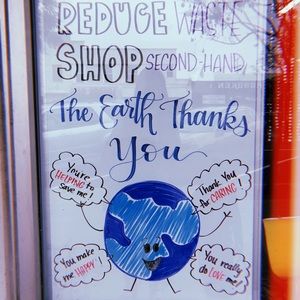 REDUCE WASTE
SHOP SECOND-HAND
The Earth Thanks
You
You're
HELPING to
save me!
Thank You
for CARING!
You make
me HAPPY!
You really
do LOVE me!